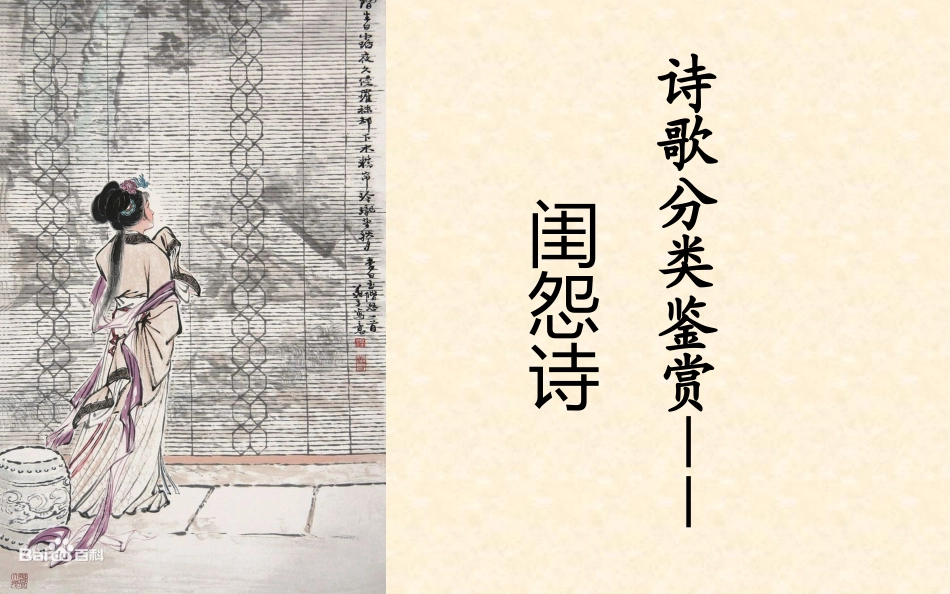 诗歌分类鉴赏——
闺怨诗
阶生白露夜久侵罗袜却下水精帘玲珑望秋月
李白玉阶怨一首
Baidu百科